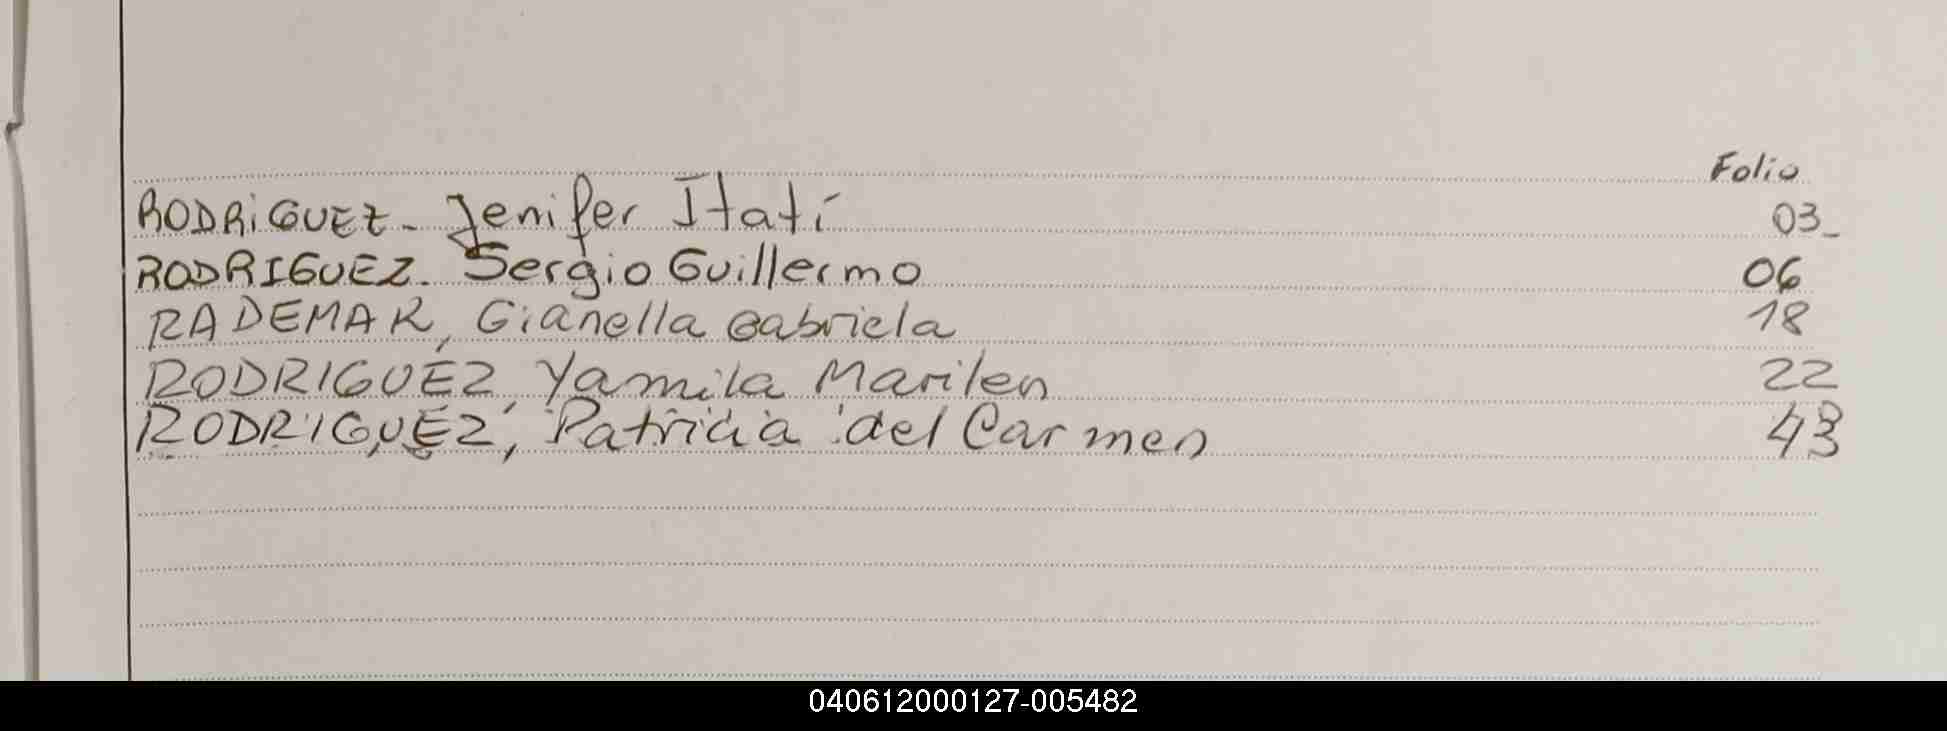 Folio
RODRIGUEZ - Jenifer Itatí 03_
RODRIGUEZ. Sergio Guillermo 06
RADEMAR, Gianella Gabriela 18
RODRIGUEZ, Yamila Marilen 22
RODRIGUEZ, Patricia del Carmen 43
040612000127-005482